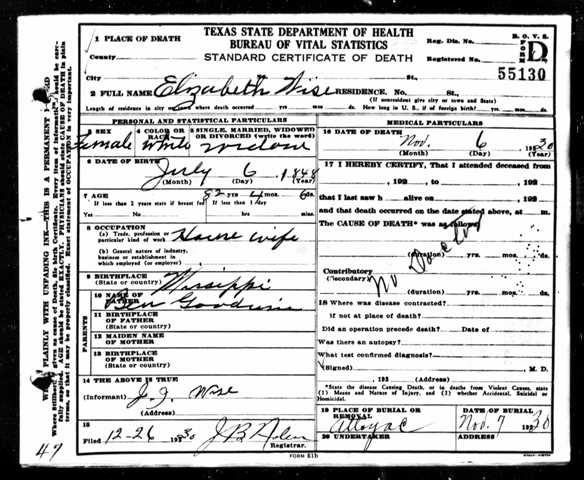 TEXAS STATE DEPARTMENT OF HEALTH
BUREAU OF VITAL STATISTICS
STANDARD CERTIFICATE OF DEATH
B. O. V. S.
FORM D
Reg. Dis. No.
Registered No.
55130
1 PLACE OF DEATH
County
City St.,
2 FULL NAME Elizabeth Wise RESIDENCE. No. St.,
(If nonresident give city or town and State)
Length of residence in city where death occurred yrs. mos. ds. How long in U. S., if of foreign birth? yrs. mos. ds.
PERSONAL AND STATISTICAL PARTICULARS
3 SEX
4 COLOR OR RACE
5 SINGLE, MARRIED, WIDOWED or DIVORCED (write the word)
Female White Widow
6 DATE OF BIRTH
July 6 1848
(Month) (Day) (Year)
7 AGE
82 yrs 4 mos. ds.
If less than 2 years state if breast fed If less than 1 day
Yes No hrs min.
8 OCCUPATION
(a) Trade, profession or particular kind of work House wife
(b) General nature of industry, business or establishment in which employed (or employer)
9 BIRTHPLACE
(State or country) Missippi
10 NAME OF FATHER Ben
11 BIRTHPLACE OF FATHER
(State or country)
12 MAIDEN NAME OF MOTHER
13 BIRTHPLACE OF MOTHER
(State or country)
PARENTS
14 THE ABOVE IS TRUE
(Informant) J. J. Wise
(Address)
15
Filed 12-26 1930 J B
Registrar.
FORM
MEDICAL PARTICULARS
16 DATE OF DEATH
Nov. 6 1930
(Month) (Day) (Year)
17 I HEREBY CERTIFY, That I attended deceased from
, 192 , to , 192 ,
that I last saw h alive on , 192 ,
and that death occurred on the date stated above, at m.
The CAUSE OF DEATH* was as follows:
No Doctor
(duration) yrs. mos. ds.
Contributory
(Secondary)
(duration) yrs. mos. ds.
18 Where was disease contracted?
if not at place of death?
Did an operation precede death? Date of
Was there an autopsy?
What test confirmed diagnosis?
(Signed) M. D.
, 192 (Address)
*State the disease Causing Death, or in deaths from Violent Causes, state (1) Means and Nature of Injury, and (2) whether Accidental, Suicidal or Homicidal.
19 PLACE OF BURIAL OR REMOVAL
DATE OF BURIAL
Nov. 7 1930
20 UNDERTAKER
ADDRESS
49